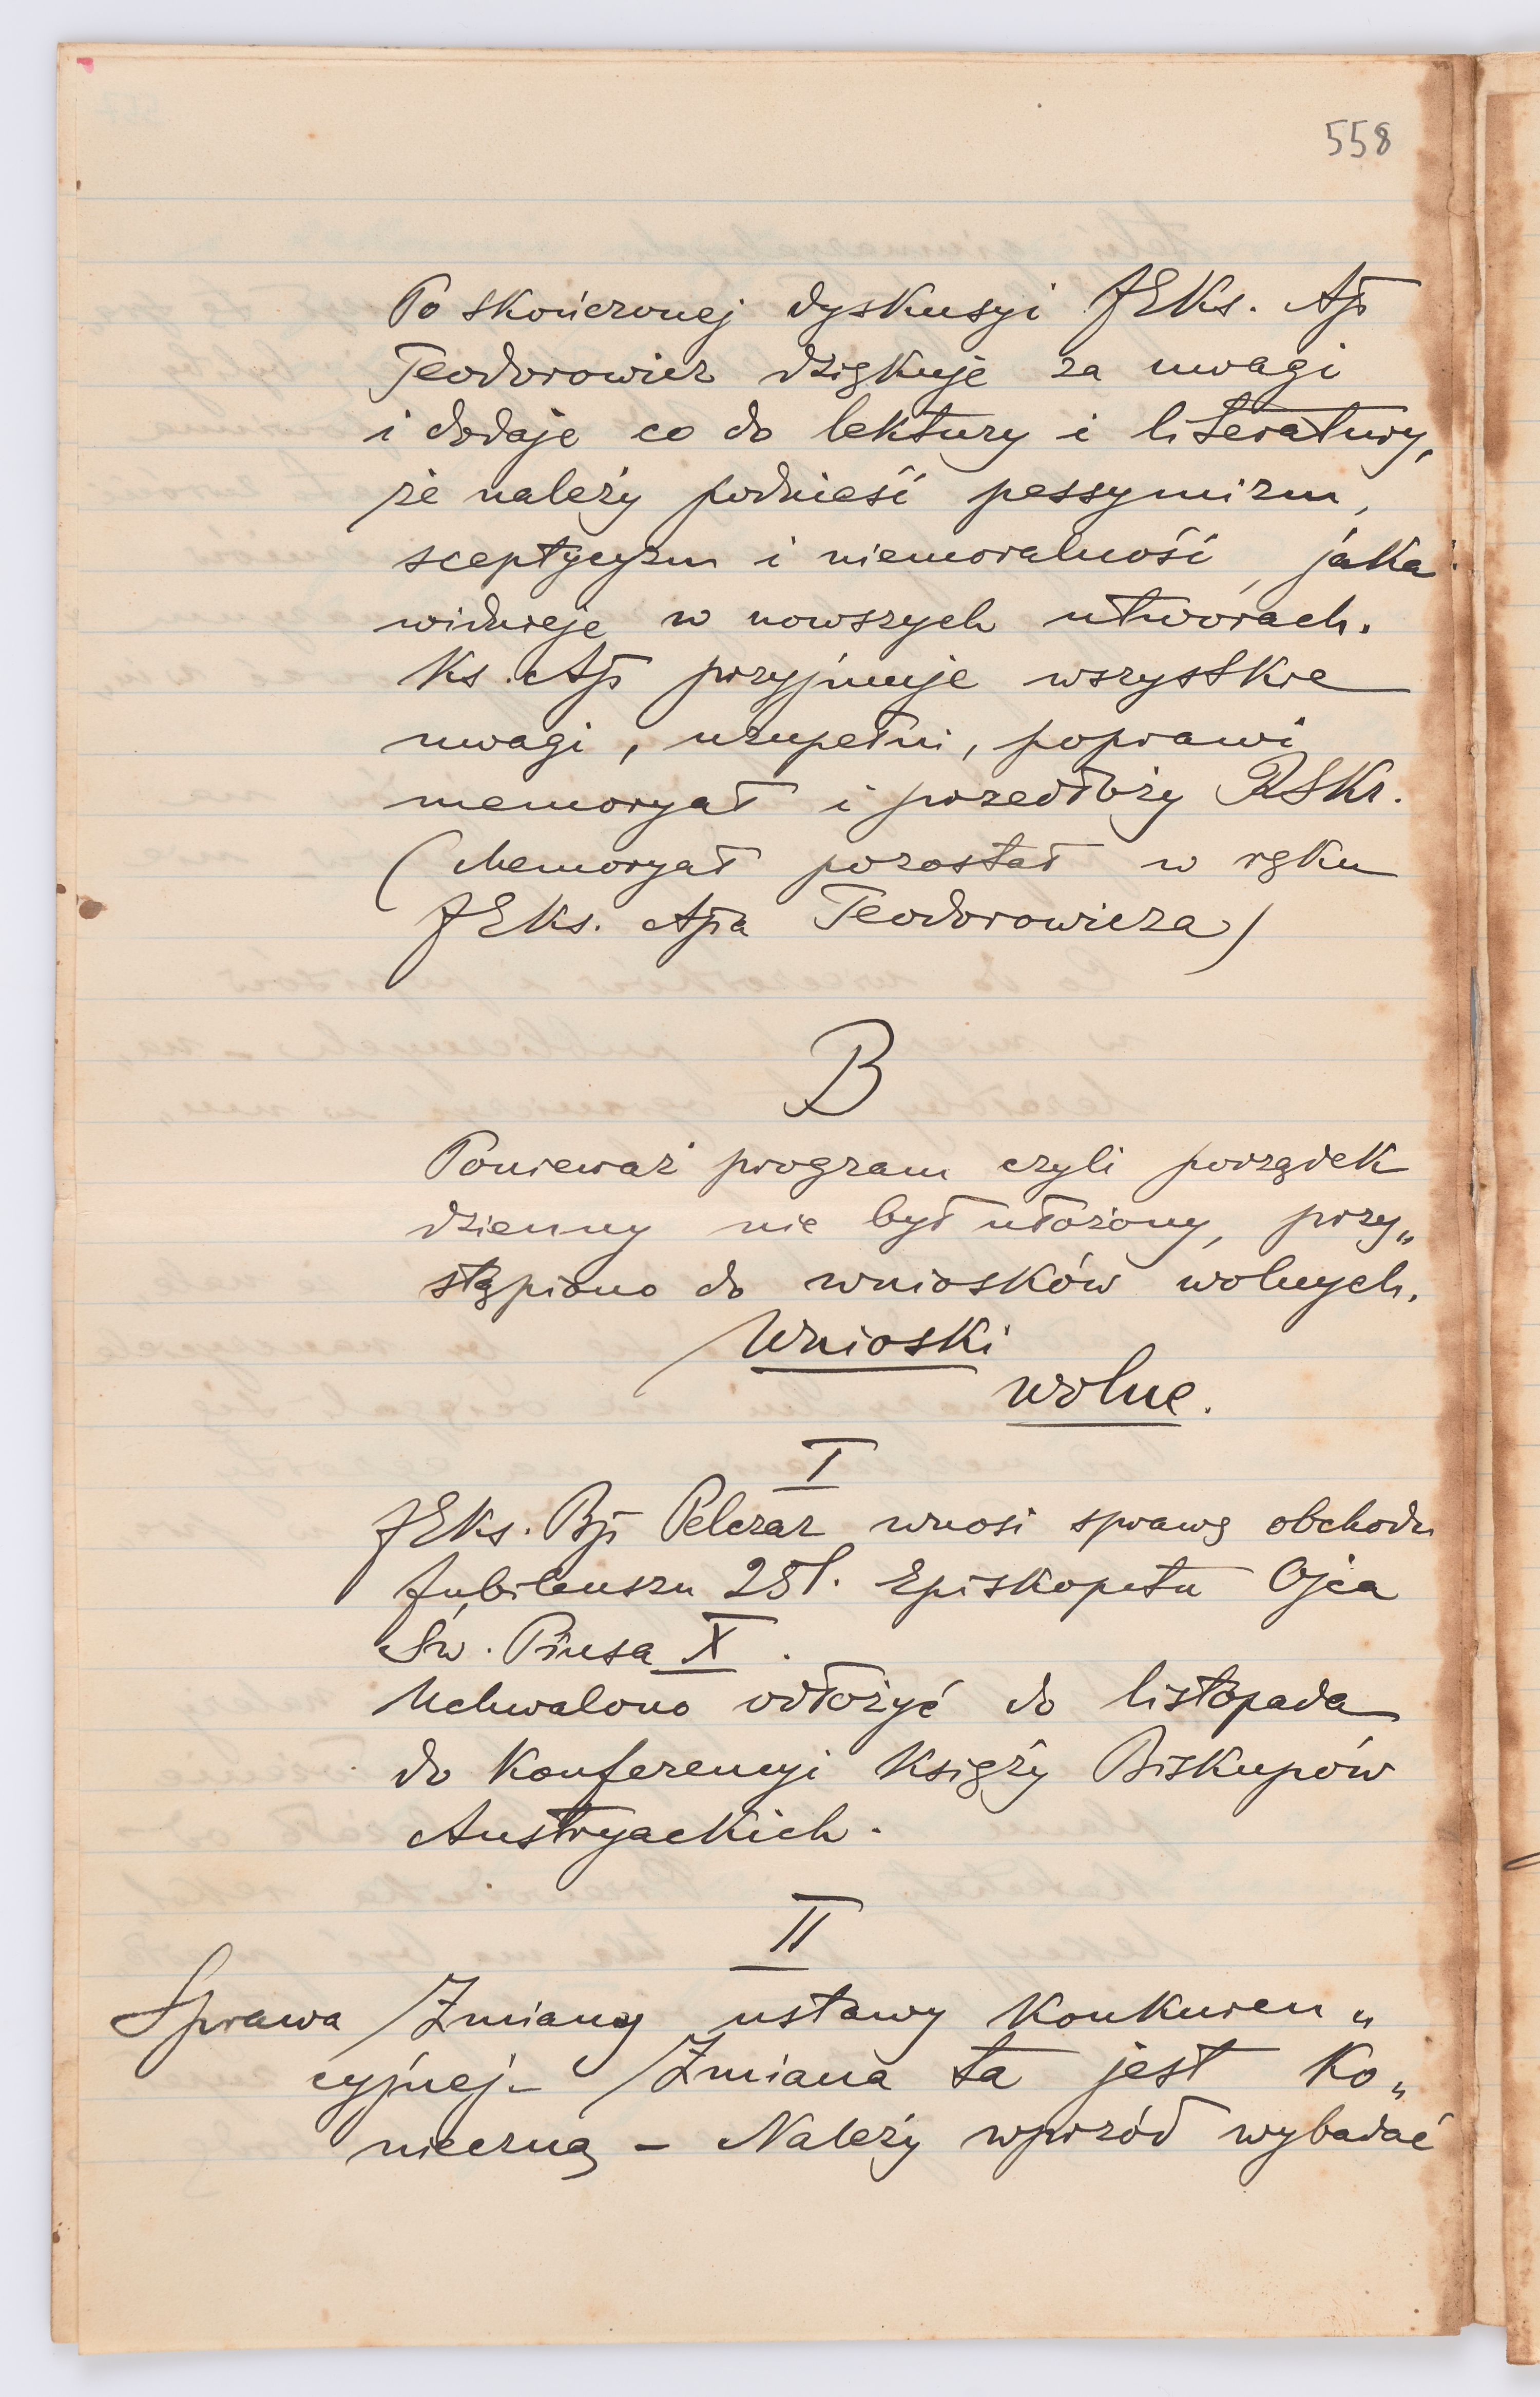 558
Po skończonej dyskusyi JEKs. Ap
Teodorowicz dziękuje za uwagi
i dodaje co do lektury i literatury,
że należy podnieść pessymizm,
sceptycyzm i niemoralność, jaka
widnieje w nowszych utworach.
Ks. Ap przyjmuje wszystkie
uwagi, uzupełni, poprawi
memoryał i przedłoży RSKr.
(Memoryał pozostał w ręku
JEks. Apa Teodorowicza)
B
Ponieważ program czyli porządek
dzienny nie był ułożony, przy„
stąpiono do wniosków wolnych.
Wnioski
wolne.
I
JEKs. Bp Pelczar wnosi sprawę obchodu
Jubileuszu 25l. Episkopatu Ojca
Św. Piusa X.
Uchwalono odłożyć do listopada
do Konferencyi Księży Biskupów
Austryackich.
II
Sprawa Zmiany ustawy Konkuren„
cyjnej - Zmiana ta jest Ko„
nieczną - Należy wprzód wybadać